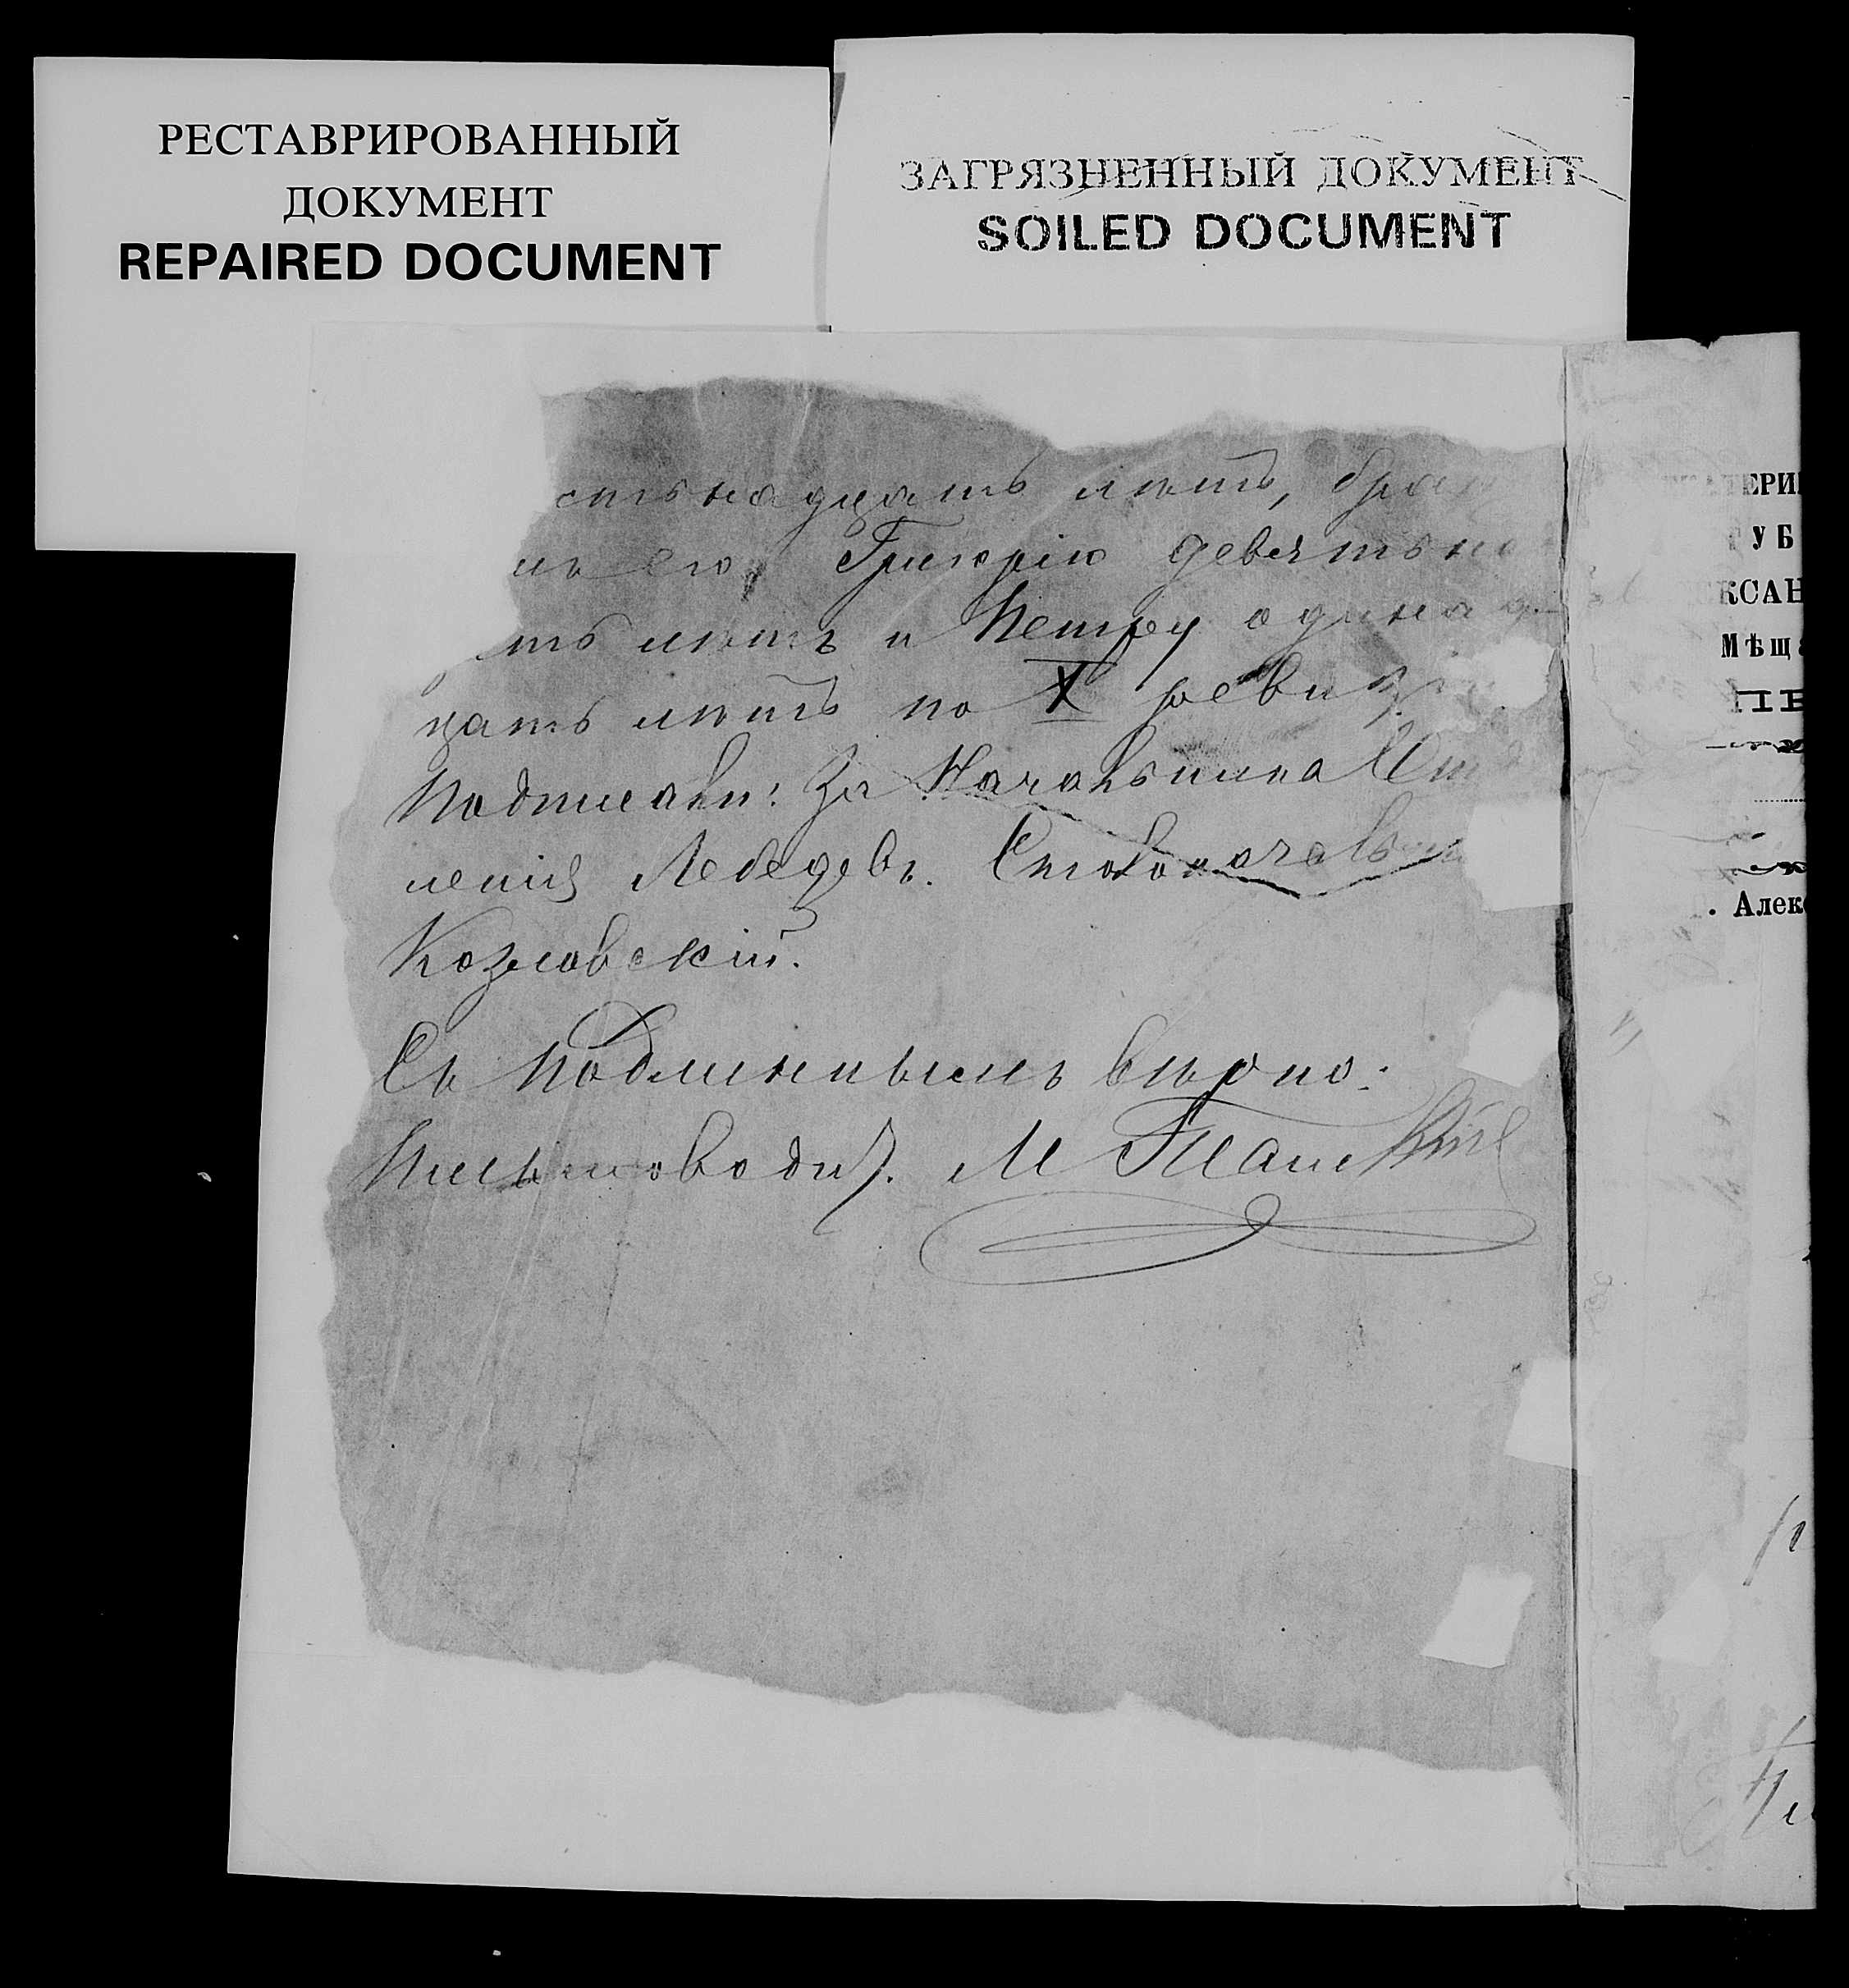 РЕСТАВРИРОВАННЫЙ
ДОКУМЕНТ
REPAIRED DOCUMENT
ЗАГРЯЗНЕННЫЙ ДОКУМЕНТ
SOILED DOCUMENT
стьнадцать лѣтъ,
его Григорію девятьна
ть лѣтъ и Петру одинад
цать лѣтъ по X ревиз
Подписали: За Начальника Отд
ленія Лебедевъ. Столоначальн
Козловскій.
Съ подлиннымъ вѣрно:
Письмоводит. М
ТЕРИ
УБ
КСАН
Мѣща
. Алекс